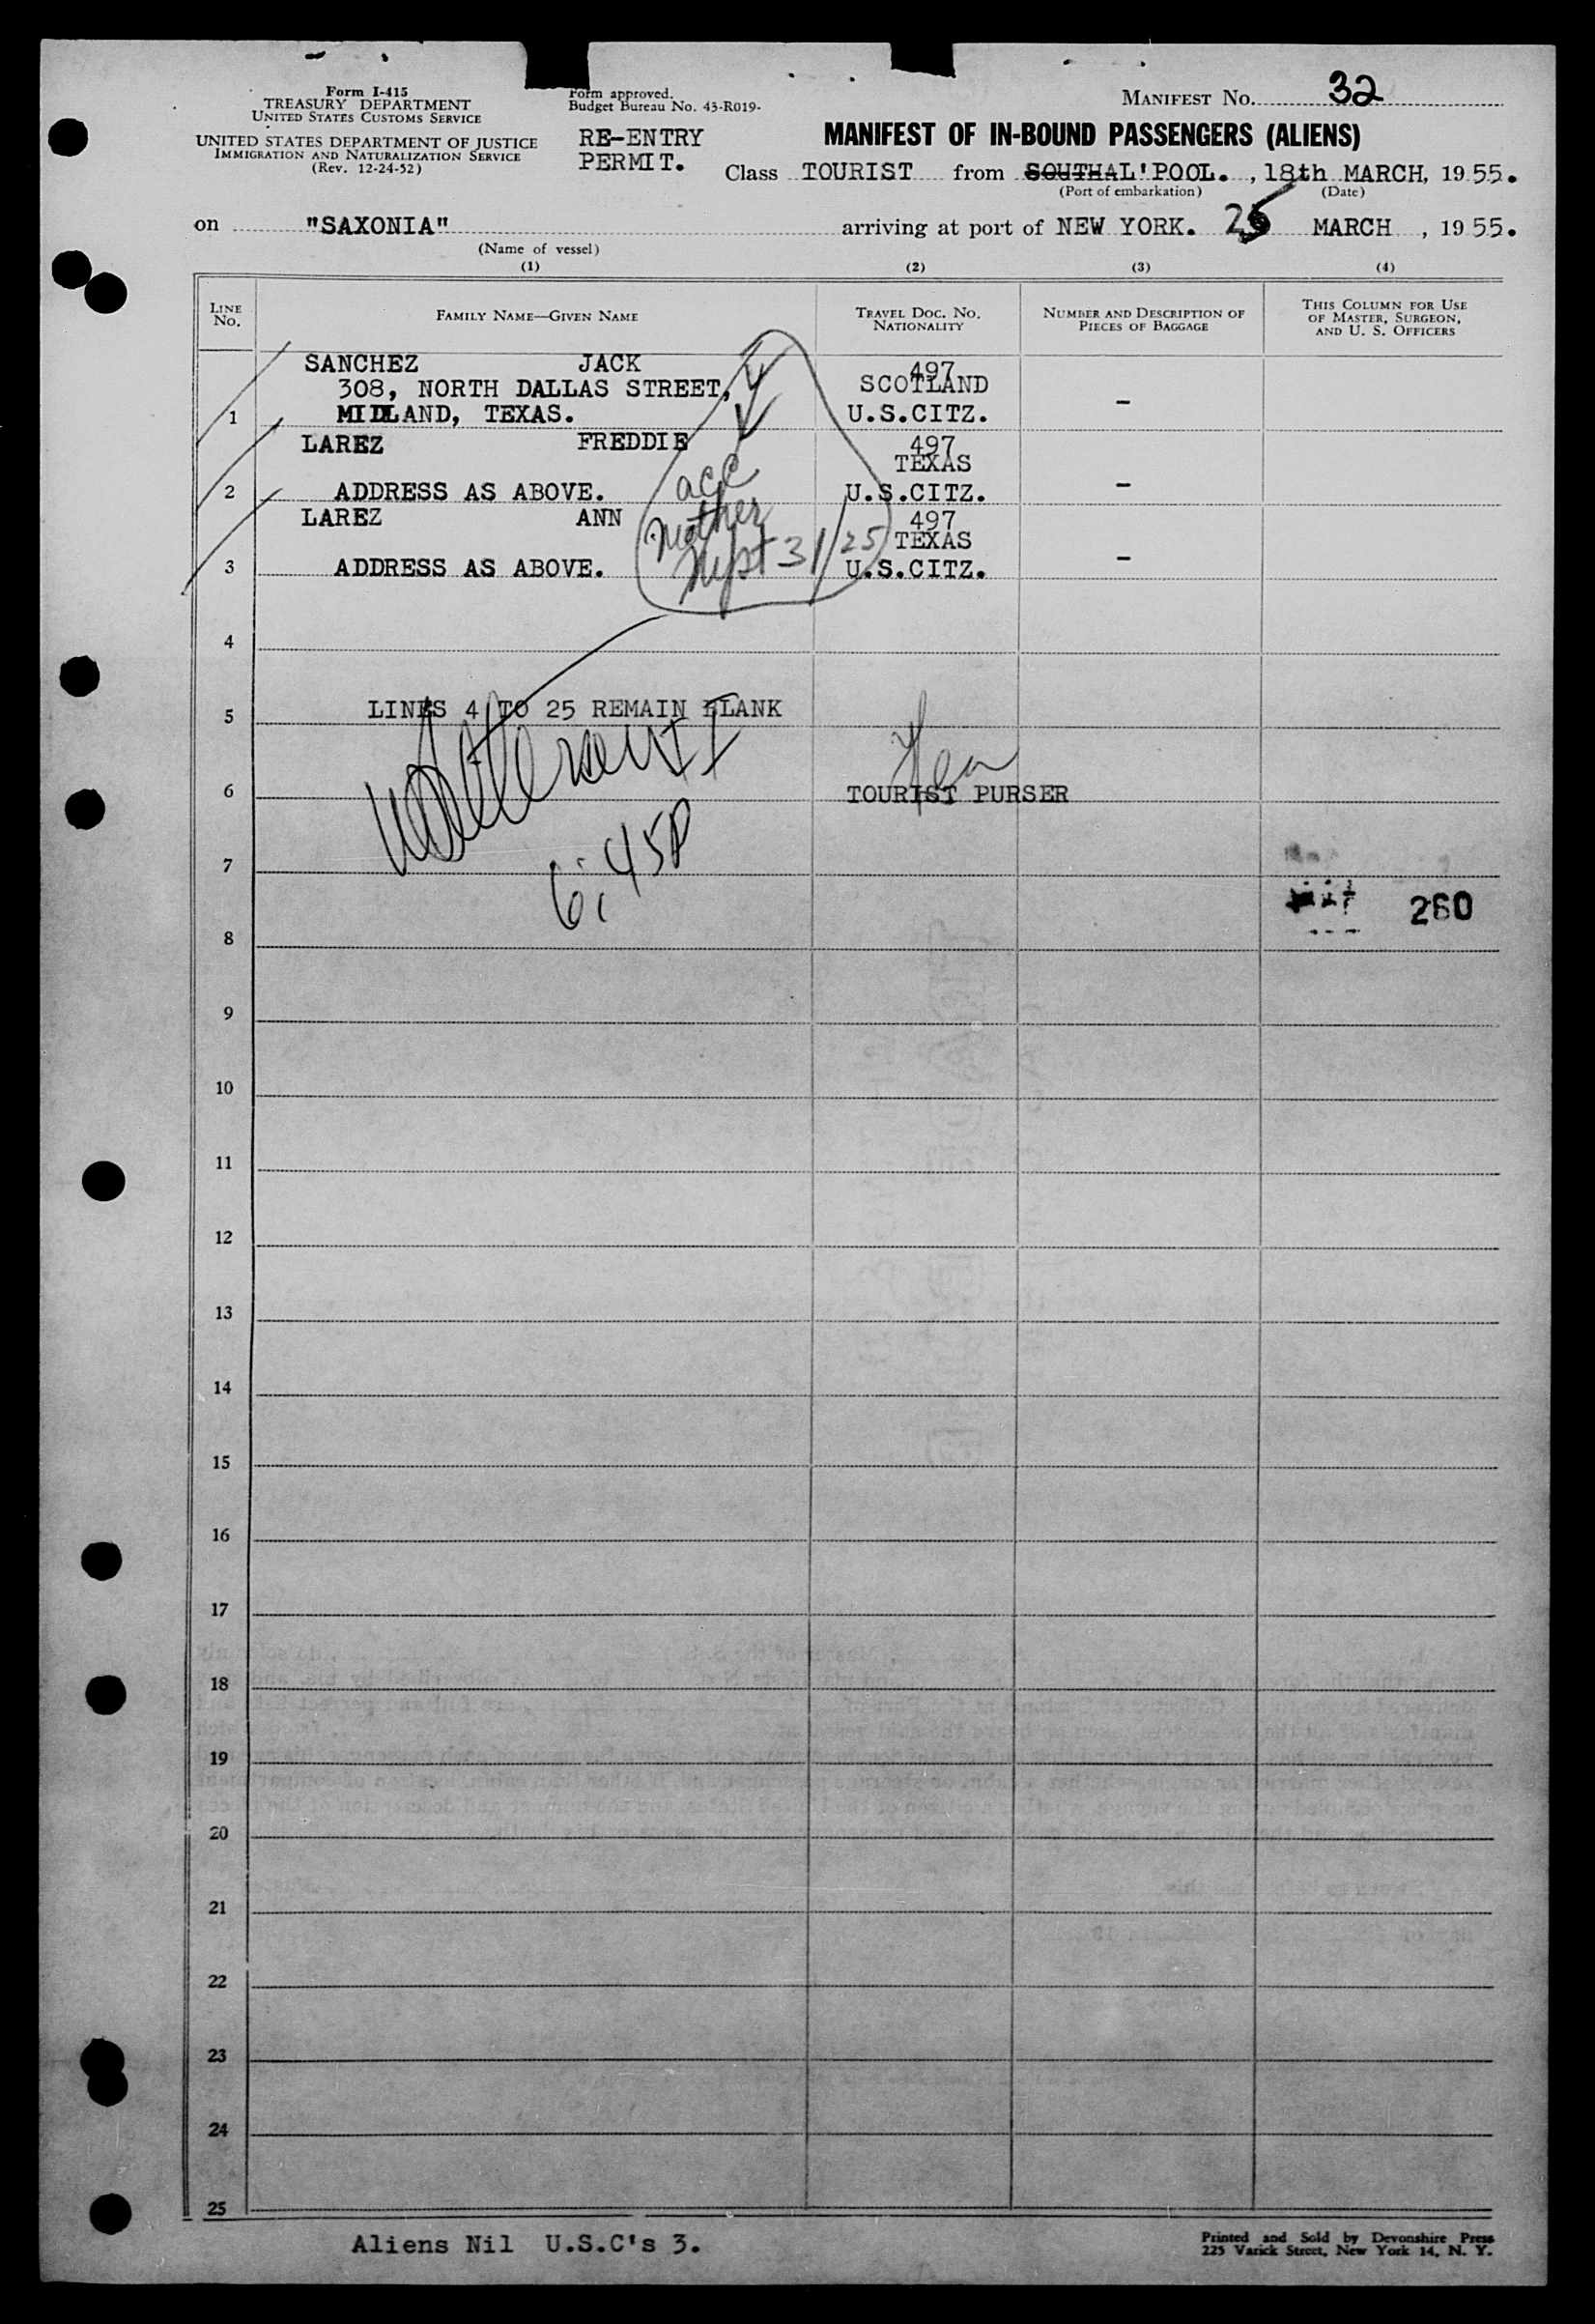 Form I-415
TREASURY DEPARTMENT
UNITED STATES CUSTOMS SERVICE
UNITED STATES DEPARTMENT OF JUSTICE
IMMIGRATION AND NATURALIZATION SERVICE
(Rev. 12-24-52)
Form approved.
Budget Bureau No. 43-R019-
RE-ENTRY
PERMIT.
MANIFEST NO. 32
MANIFEST OF IN-BOUND PASSENGERS (ALIENS)
Class TOURIST from SOUTHAL'POOL. , 18th MARCH, 19 55.
(Port of embarkation) (Date)
on "SAXONIA" arriving at port of NEW YORK. 25 MARCH , 19 55.
(Name of vessel)
(1) (2) (3) (4)
LINE NO.
FAMILY NAME—GIVEN NAME
TRAVEL DOC. NO.
NATIONALITY
NUMBER AND DESCRIPTION OF
PIECES OF BAGGAGE
THIS COLUMN FOR USE
OF MASTER, SURGEON,
AND U. S. OFFICERS
SANCHEZ JACK 497
308, NORTH DALLAS STREET, SCOTLAND
1 MIDLAND, TEXAS. U.S.CITZ. -
LAREZ FREDDIE 497
TEXAS
2 ADDRESS AS ABOVE. U.S.CITZ. -
LAREZ ANN 497
TEXAS
3 ADDRESS AS ABOVE. U.S.CITZ. -
acc
mother
31/25
4
5 LINES 4 TO 25 REMAIN BLANK
6 TOURIST PURSER
6:45P
7
260
8
9
10
11
12
13
14
15
16
17
18
19
20
21
22
23
24
25
Aliens Nil U.S.C's 3.
Printed and Sold by Devonshire Press
225 Varick Street, New York 14, N. Y.